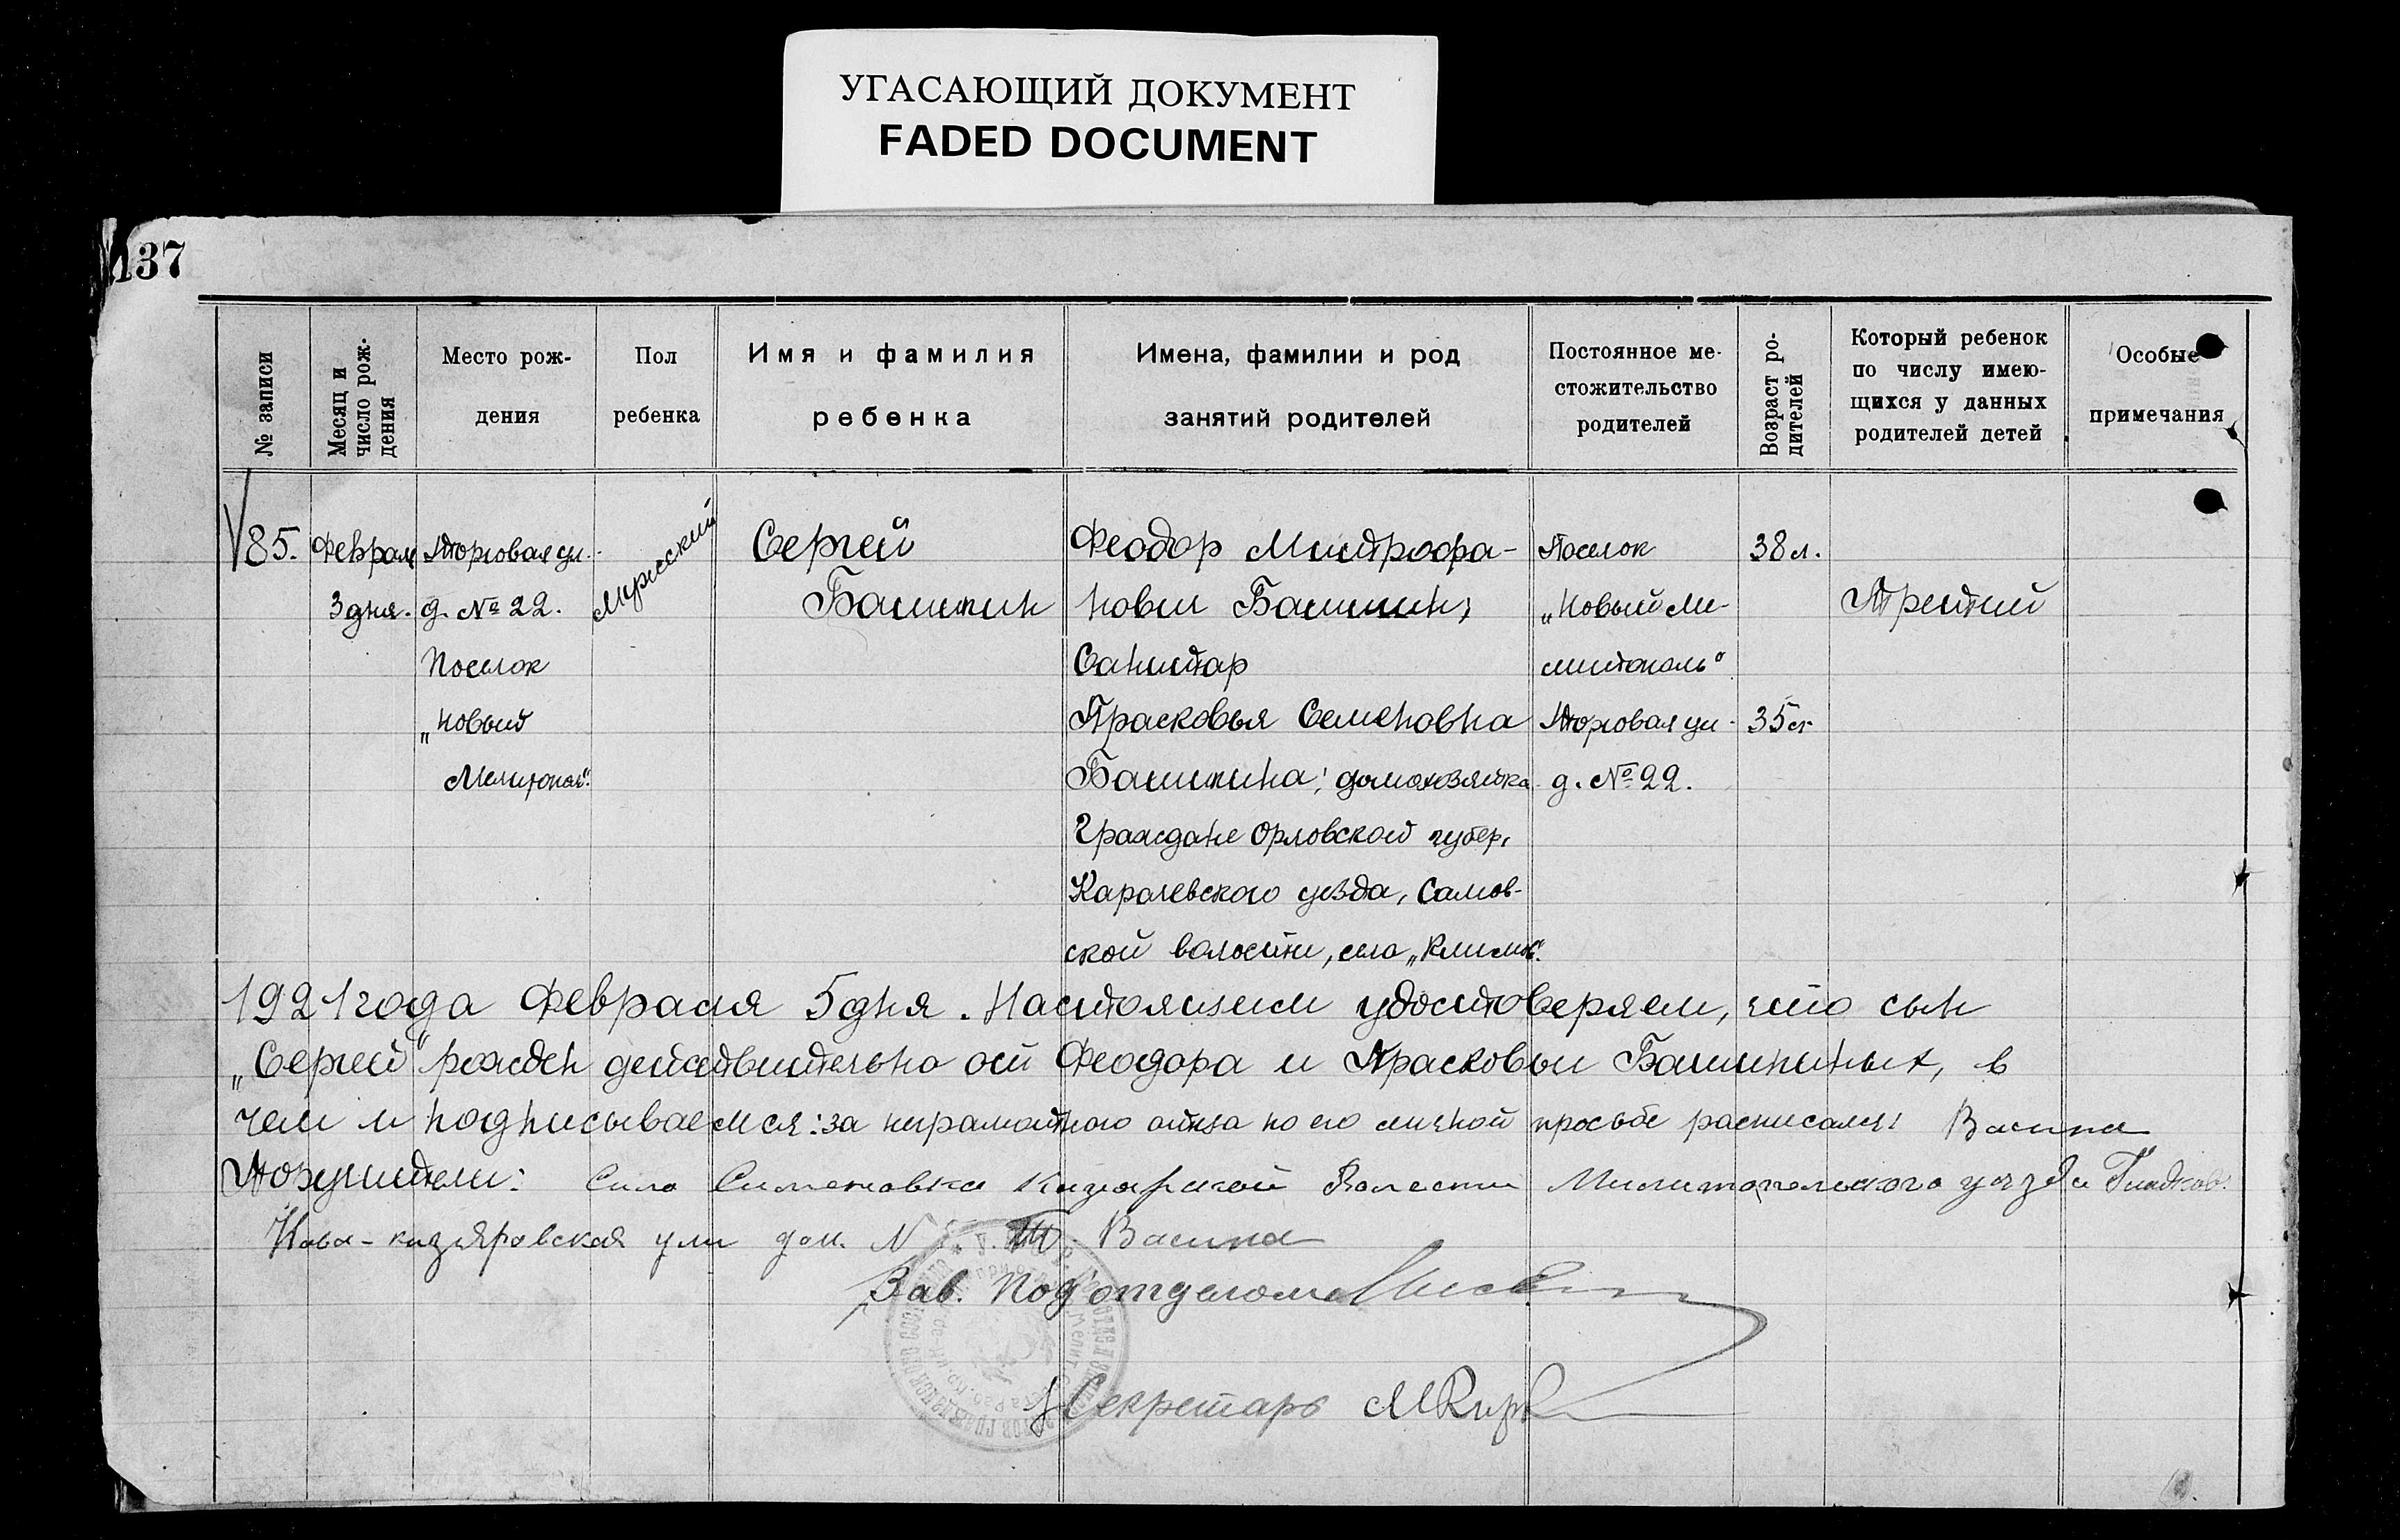 УГАСАЮЩИЙ ДОКУМЕНТ
FADED DOCUMENT
137
№ записи
Месяц и
число рож-
дения
Место рож-
дения
Пол
ребенка
Имя и фамилия
ребенка
Имена, фамилии и род
занятий родителей
Постоянное ме-
стожительство
родителей
Возраст ро-
дителей
Который ребенок
по числу имею-
щихся у данных
родителей детей
Особые
примечания
85.
Февраля
3 дня.
Торговая ул.
д. № 22.
Поселок
„Новый
Мелитополь“.
Мужеский
Сергей
Башкин
Феодор Митрофа-
нович Башкин;
Санитар
Прасковья Семеновна
Башкина; домохозяйка
Граждане Орловской губер.
Карачевского уезда, Самов-
ской волости, село „Климов“.
Поселок
„Новый Ме-
литополь“
Торговая ул.
д. № 22.
38 л.
35 л.
Третий
1921 года Февраля 5 дня. Настоящем удостоверяем, что сын
„Сергей“ рожден действительно от Феодора и Прасковьи Башкиных, в
чем и подписываемся: за неграмотного отца по его личной просьбе расписался:
Поручители: Село Семеновка Кизярской Волости Мелитопольского уезда
Ново-кизяровская ули дом. N
Зав. Под'отделом
Секретарь